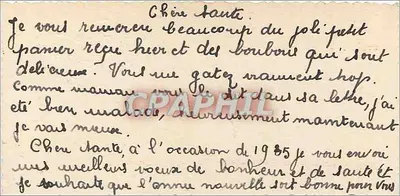 Chère tante.
Je vous remercie beaucoup du joli petit
panier reçu hier et des bonbons qui sont
délicieux. Vous me gatez vraiment trop.
Comme maman vous le dit dans sa lettre, j'ai
été bien malade, heureusement maintenant
je vais mieux.
Chère tante, à l'occasion de 1935 je vous envoie
mes meilleurs voeux de bonheur et de santé et
je souhaite que l'année nouvelle soit bonne pour vous
CPAPHIL